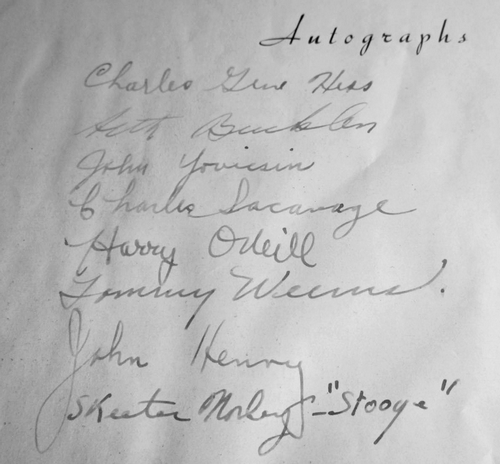 Autographs
Charles Gene Hess
John Yovicsin
Charles Sacavage
Harry O'Neill
Tommy Weems.
John Henry
Skeeter -"Stooge"